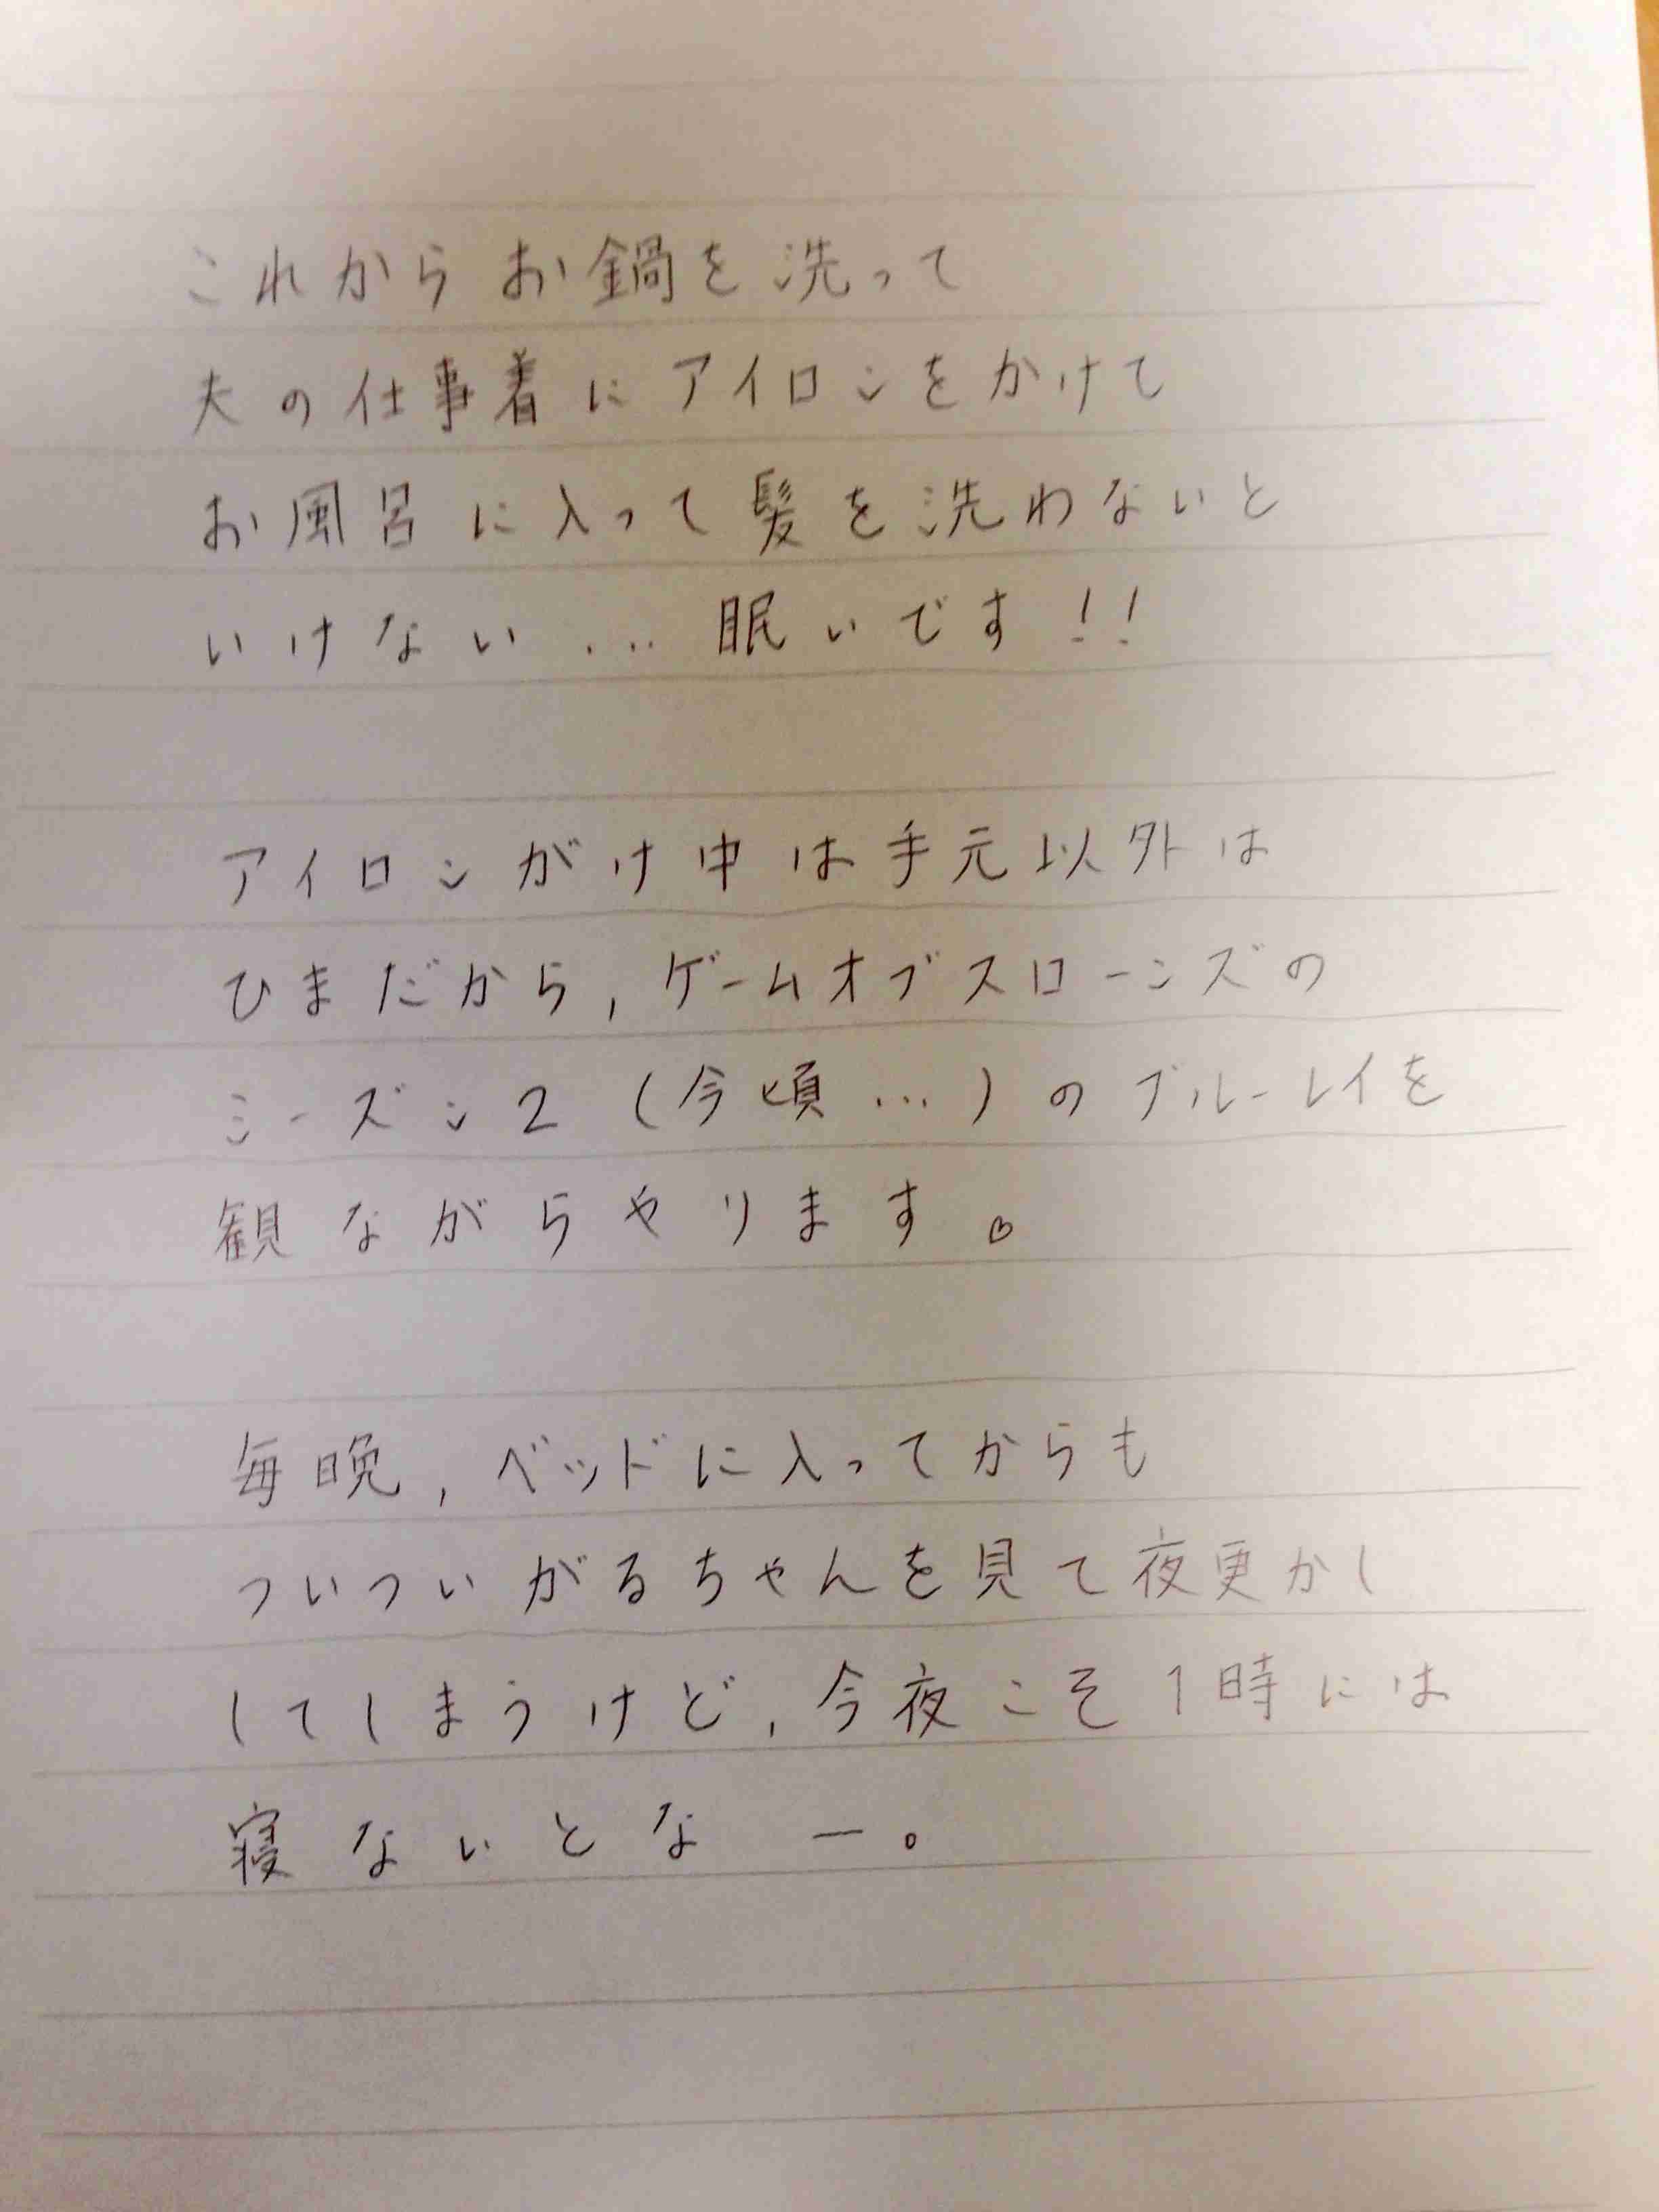 これからお鍋を洗って
夫の仕事着にアイロンをかけて
お風呂に入って髪を洗わないと
いけない...眠いです!!
アイロンがけ中は手元以外は
ひまだから,ゲームオブスローンズの
シーズン2(今頃...)のブルーレイを
観ながらやります。
毎晩,ベッドに入ってからも
ついついがるちゃんを見て夜更かし
してしまうけど,今夜こそ1時には
寝ないとなー。